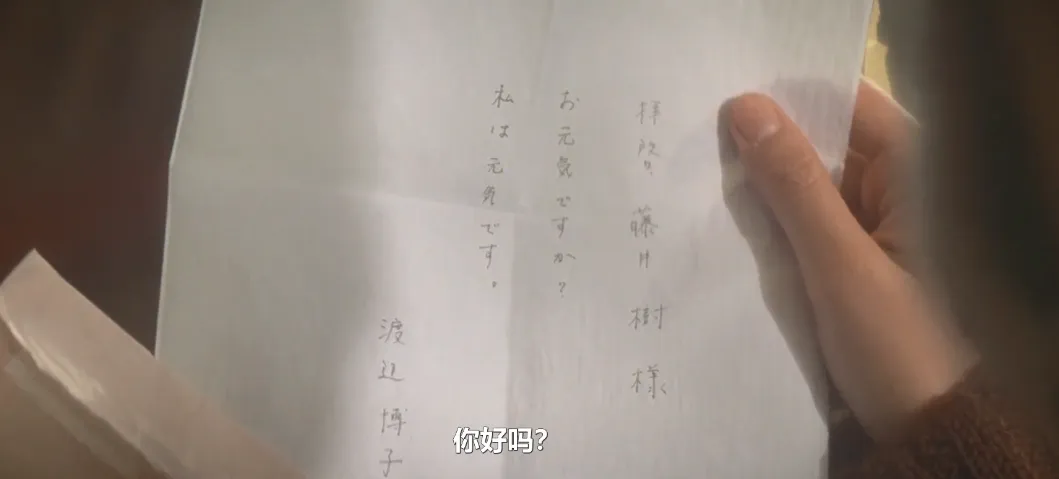 拝啓 藤井 樹 様
お元気ですか？
私は元気です。
渡辺博子
你好吗?